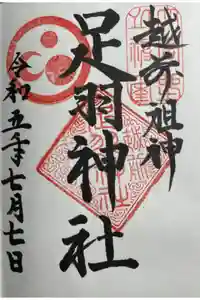 越前ノ祖神
足羽神社
令和五年七月七日